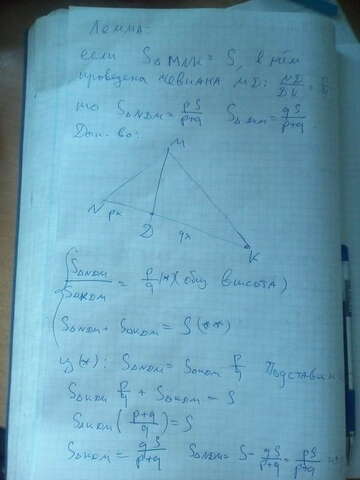 Лемма:
если S△MNK = S, в нём
проведена чевиана MD: ND/DK = p/q
то S△NDM = pS/(p+q) S△ = qS/(p+q)
Док-во:
M
N px
D qx K
{ S△NDM/S△KDM = p/q (*) (общ высота)
S△NDM + S△KDM = S (**)
Из (*): S△NDM = S△KDM p/q Подставим
S△KDM p/q + S△KDM = S
S△KDM ((p+q)/q) = S
S△KDM = qS/(p+q) S△NDM = S - qS/(p+q) = pS/(p+q)